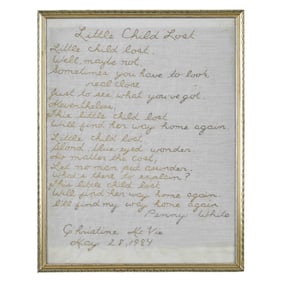 Little Child Lost
Little child lost
Well, maybe not
Sometimes you have to look
real close
Just to see what you've got.
Nevertheless,
This little child lost
Will find her way home again.
Little child lost,
Blond, blue eyed wonder.
No matter the cost,
Let no man put asunder.
What's there to explain?
This little child lost
Will find her way home again
I'll find my way home again
Penny White
Christine McVie
May 28, 1984